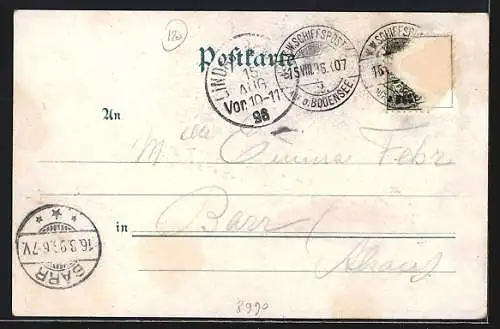 120
Postkarte
LINDAU
15
AUG
Vor. 10-11
96
K.W. SCHIFFSPOST
15 VIII 96
a. BODENSEE.
K.W. SCHIFFSPOST
An
Mlle Emma Fehr
in Barr
Alsace
BARR
8990